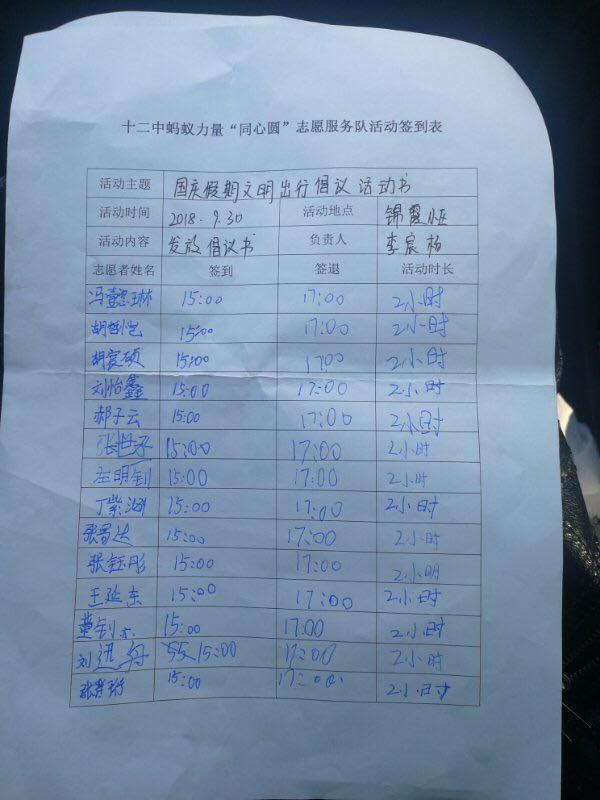 十二中蚂蚁力量“同心圆”志愿服务队活动签到表
活动主题 国庆假期文明出行倡议活动书
活动时间 2018.9.30 活动地点 锦霞小区
活动内容 发放倡议书 负责人 李宸杨
志愿者姓名 签到 签退 活动时长
冯懿琳 15:00 17:00 2小时
胡哲恺 15:00 17:00 2小时
胡宸硕 15:00 1700 2小时
刘怡鑫 15:00 17:00 2小时
郝子云 15:00 17:00 2小时
15:00 17:00 2小时
左明钊 15:00 17:00 2小时
丁紫涵 15:00 17:00 2小时
15:00 17:00 2小时
张钰彤 15:00 17:00 2小明
王延东 15:00 17:00 2小时
15:00 17.00 2小时
刘进舟 15:00 17:00 2小时
15:00 17:00 2小时